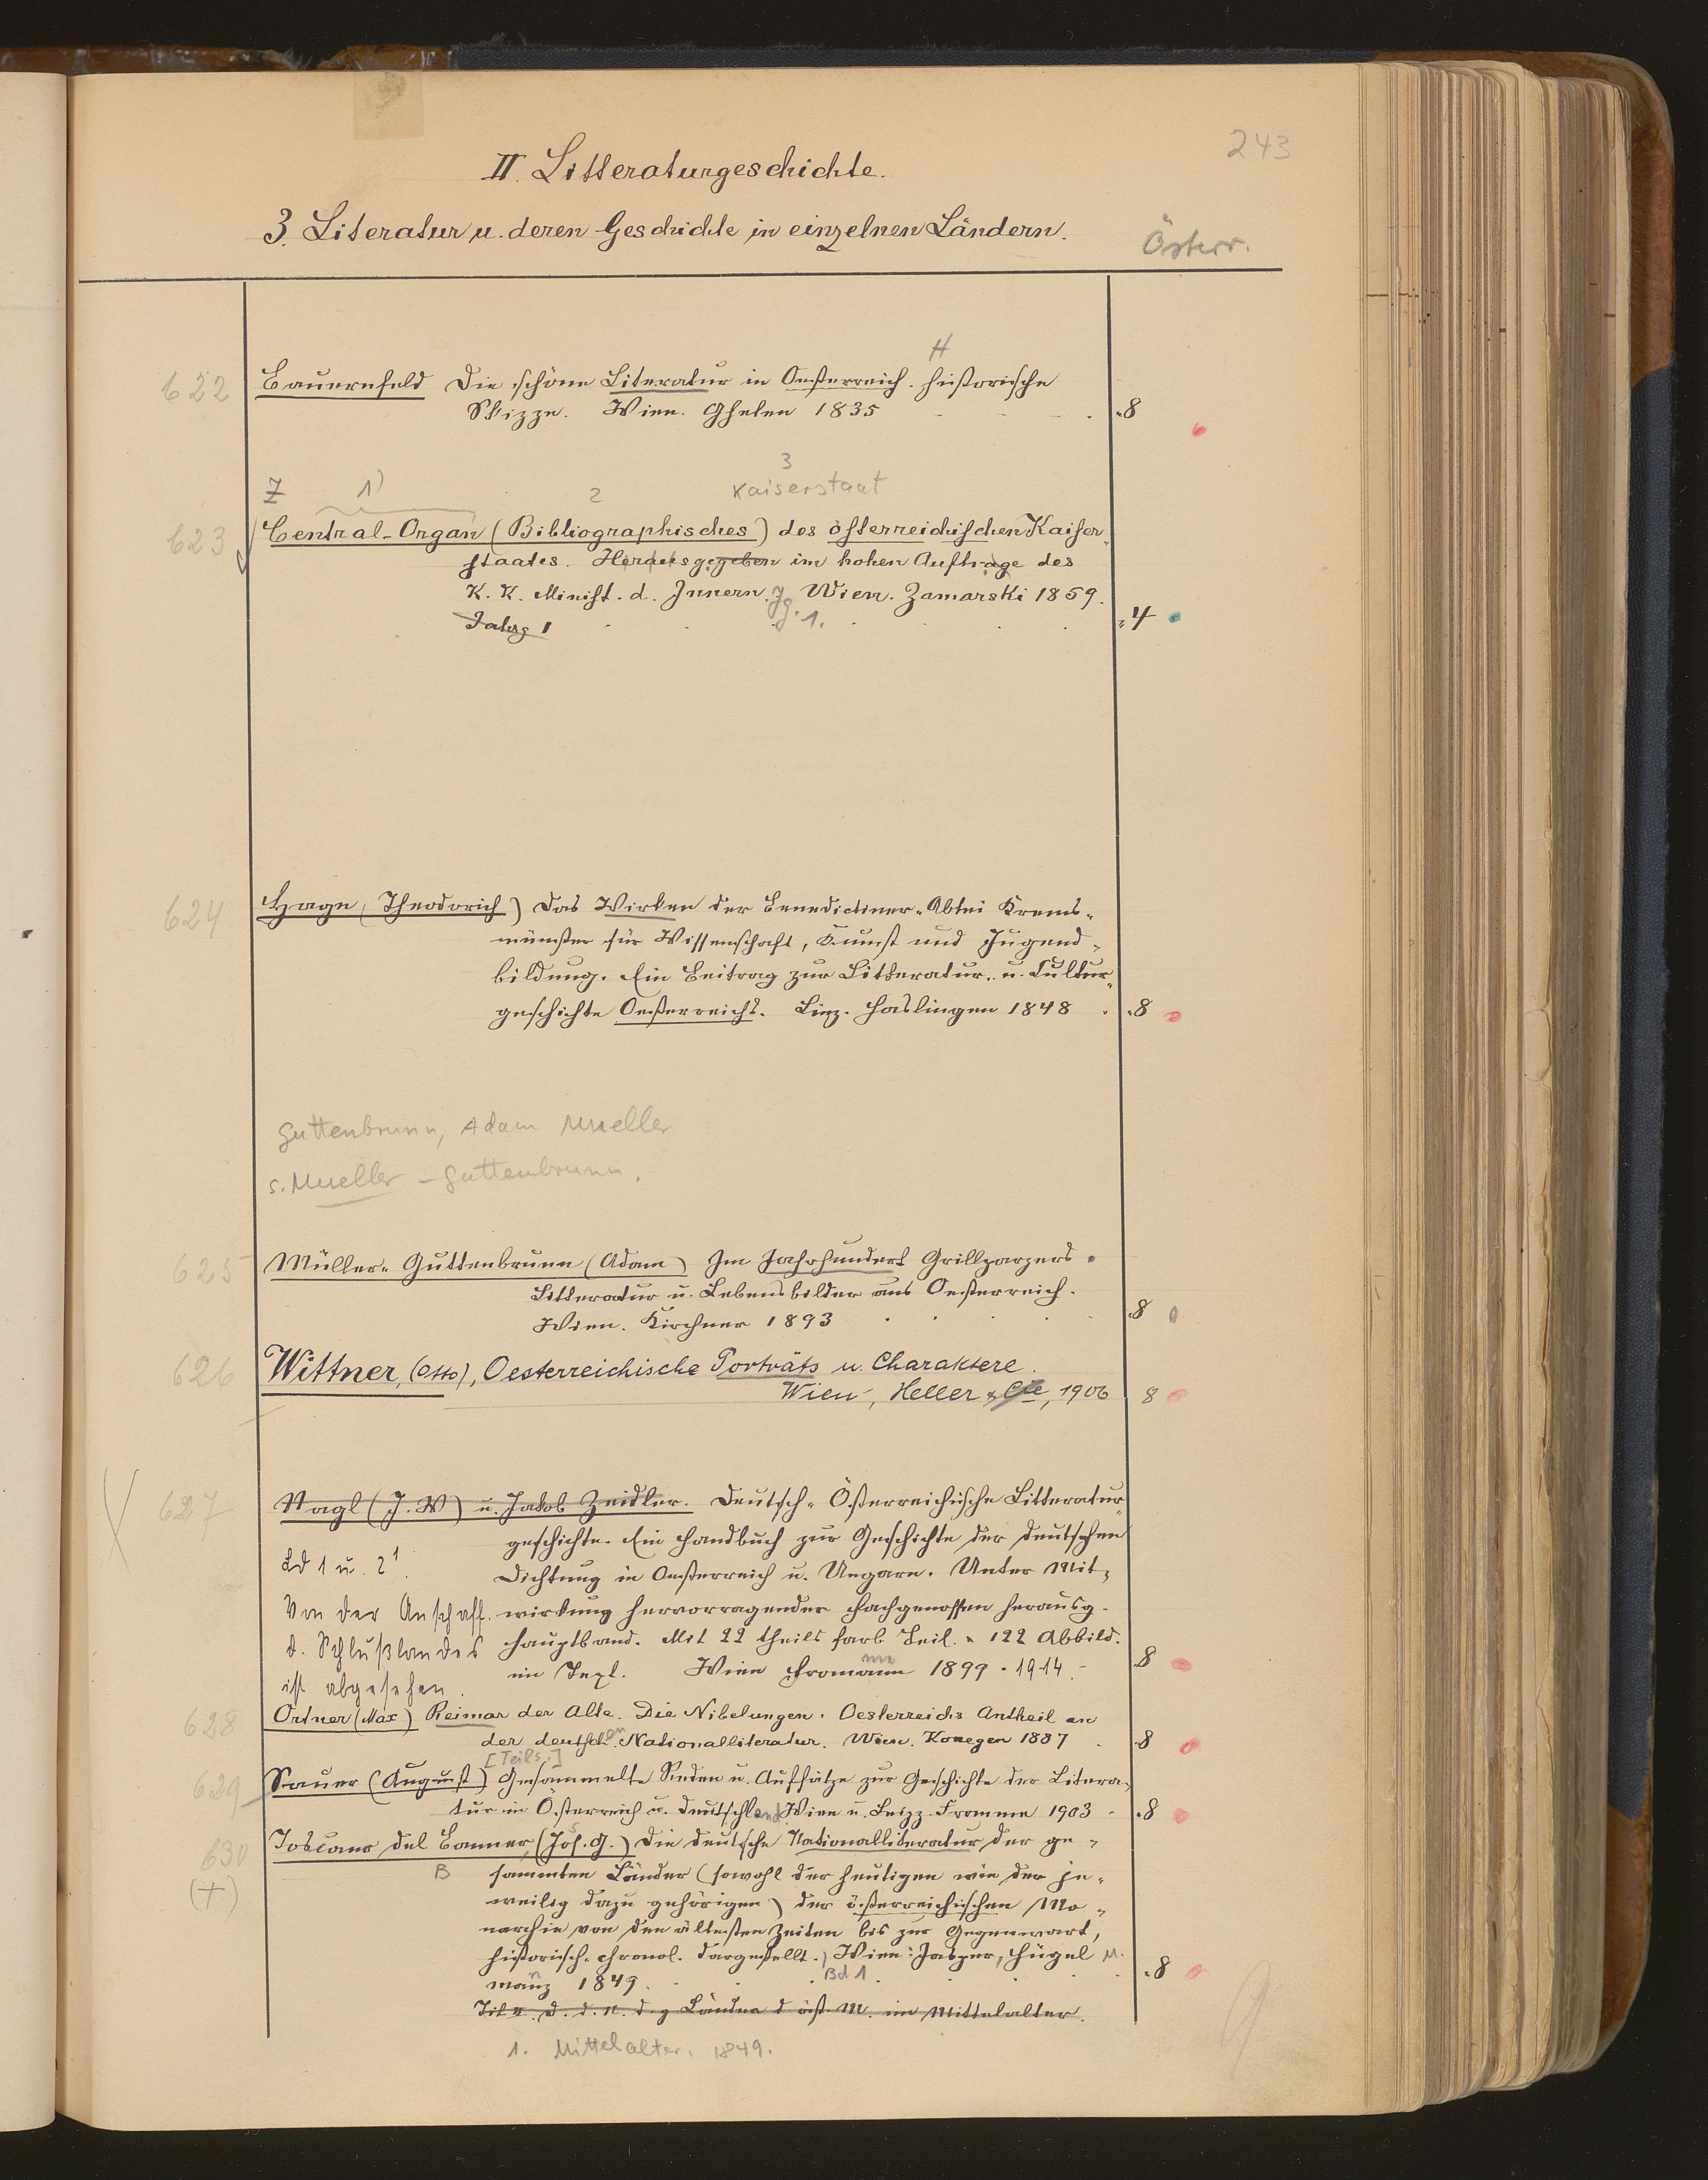 243
II. Litteraturgeschichte.
3. Literatur u. deren Geschichte in einzelnen Ländern.
Österr.
H
622 Bauernfeld Die schöne Literatur in Oesterreich. Historische
Skizze. Wien. Ghelen 1835 8
3
Z 1) 2 Kaiserstaat
623 Central-Organ (Bibliographisches) des österreichischen Kaiser-
staates. Herausgegeben im hohen Auftrage des
K. K. Minist. d. Innern. Wien. Zamarski 1859.
Jahrg 1 Jg. 1. 4
624 Hagn (Theodorich) Das Wirken der Benedictiner-Abtei Krems-
münster für Wissenschaft, Kunst und Jugend-
bildung. Ein Beitrag zur Litteratur- u. Cultur-
geschichte Oesterreichs. Linz. Haslingen 1848 8
Guttenbrunn, Adam Mueller
s. Mueller-Guttenbrunn.
625 Müller-Guttenbrunn (Adam) Im Jahrhundert Grillparzers.
Litteratur u. Lebensbilder aus Oesterreich.
Wien. Kirchner 1893 8
626 Wittner, (Otto), Oesterreichische Porträts u. Charaktere.
Wien, Heller & Cie, 1906 8
627 Nagl (J. W) u. Jakob Zeidler. Deutsch-Österreichische Litteratur
geschichte. Ein Handbuch zur Geschichte der deutschen
Bd 1 u. 2¹. Dichtung in Oesterreich u. Ungarn. Unter Mit-
Von der Anschaff. wirkung hervorragender Fachgenossen herausg.
d. Schlußbandes Hauptband. Mit 22 theils farb Beil. u 122 Abbild.
ist abgesehen. im Text. Wien Fromann 1899-1914.- 8
me
628 Ortner (Max) Reimar der Alte. Die Nibelungen. Oesterreichs Antheil an
der deutschen Nationalliteratur. Wien. Konegen 1887 8
[Teils.]
629 Sauer (August) Gesammelte Reden u. Aufsätze zur Geschichte der Litera-
tur in Österreich u. Deutschland Wien u. Leipz. Fromme 1903 8
630 Toscano del Banner (Jos. G.) Die deutsche Nationalliteratur der ge-
(+) B sammten Länder (sowohl der heutigen wie der je-
weilig dazu gehörigen) der österreichischen Mo-
narchie von den ältesten Zeiten bis zur Gegenwart,
historisch-chronol. dargestellt. Wien: Jasper, Hügel u.
manz 1849. Bd 1 8
Tit u. d. d. N. d. g Länder d öst. M. im Mittelalter.
1. Mittelalter. 1849.